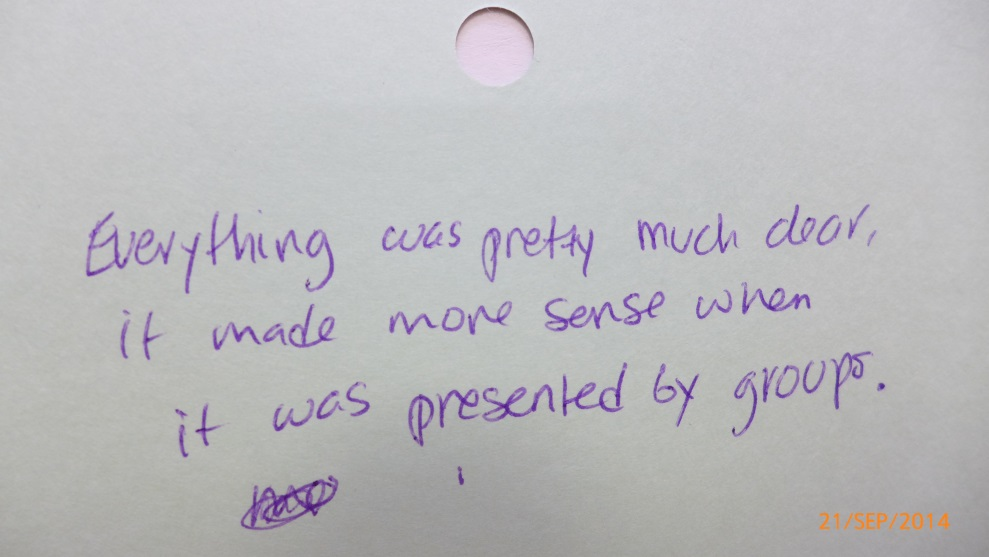 Everything was pretty much clear,
it made more sense when
it was presented by groups.
21/SEP/2014